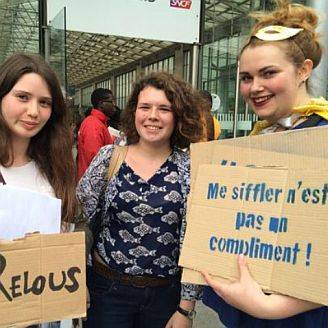 SNCF
RELOUS
Me siffler n'est
pas un
compliment !